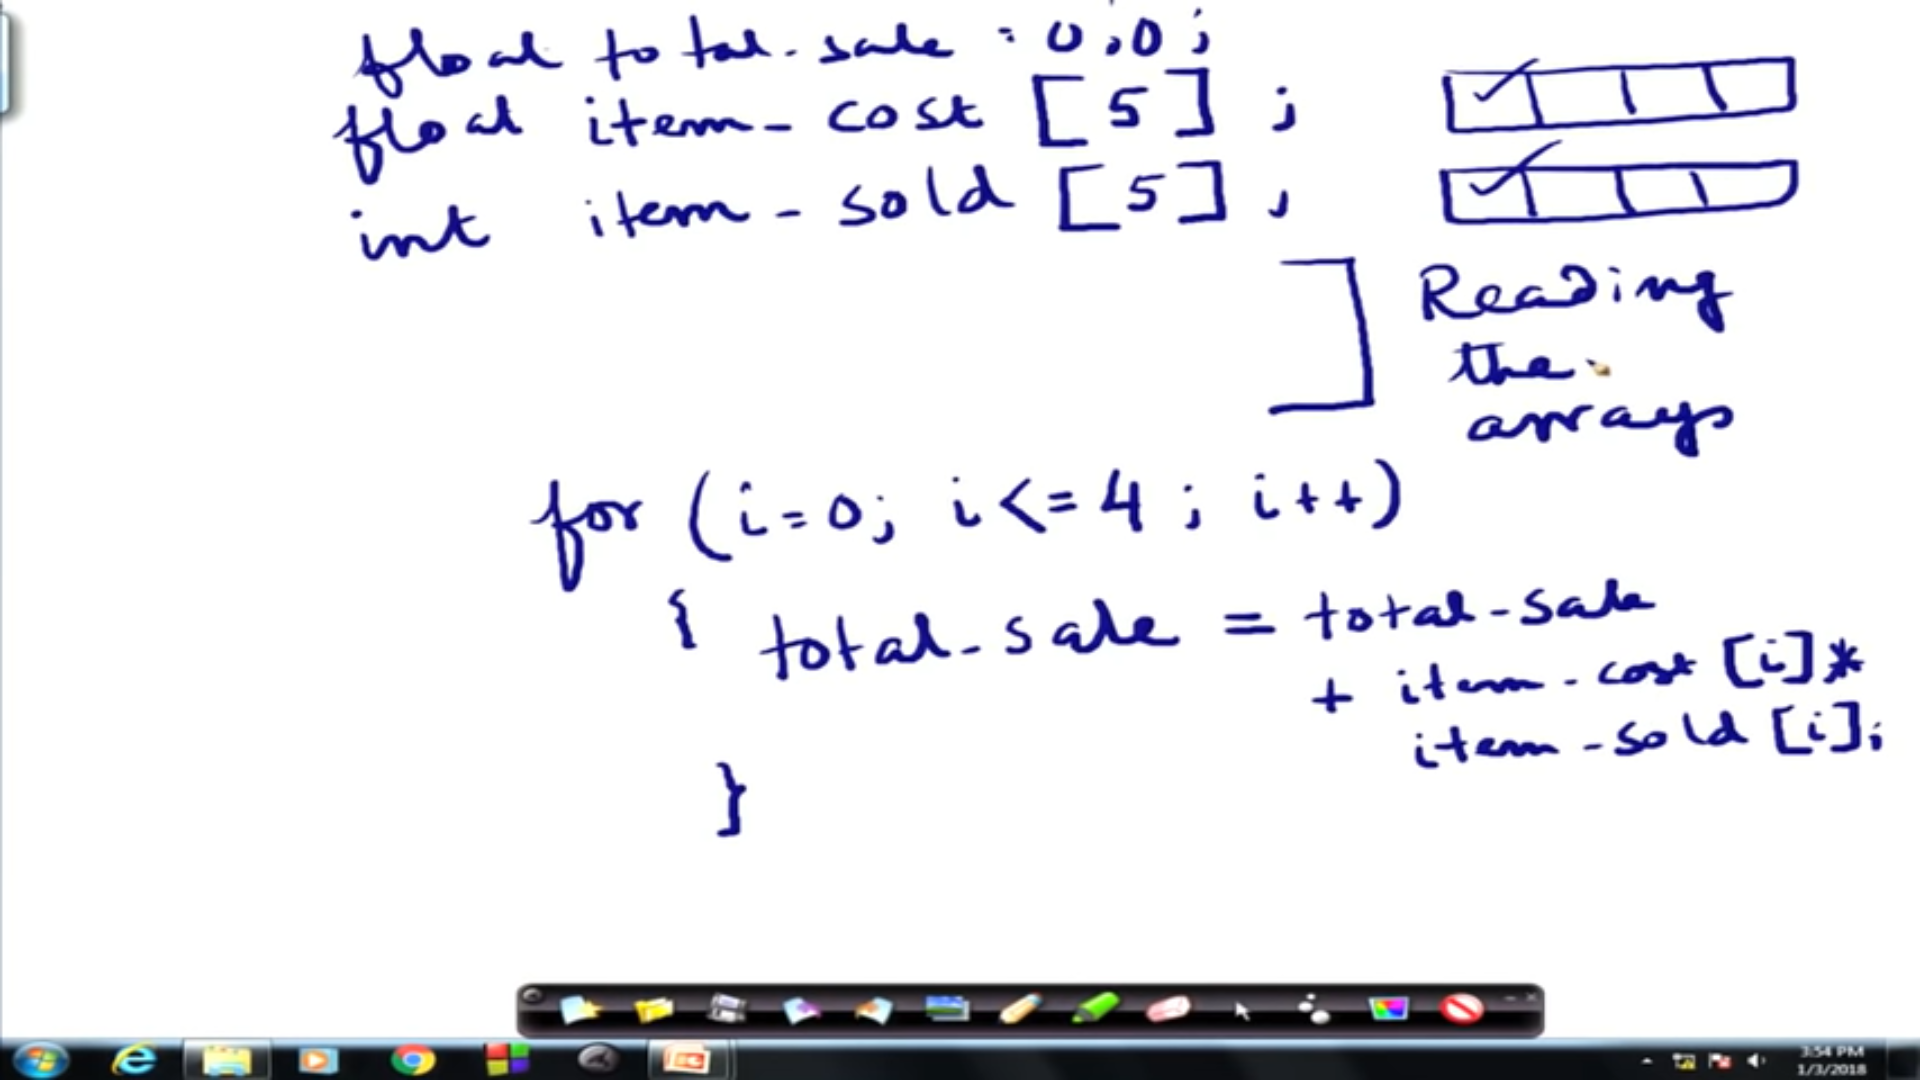 float total-sale = 0.0;
float item-cost [5] ;
int item-sold [5] ;
Reading
the
arrays
for (i=0; i<=4 ; i++)
{ total-sale = total-sale
+ item-cost [i]*
item-sold [i];
}
3:54 PM
1/3/2018